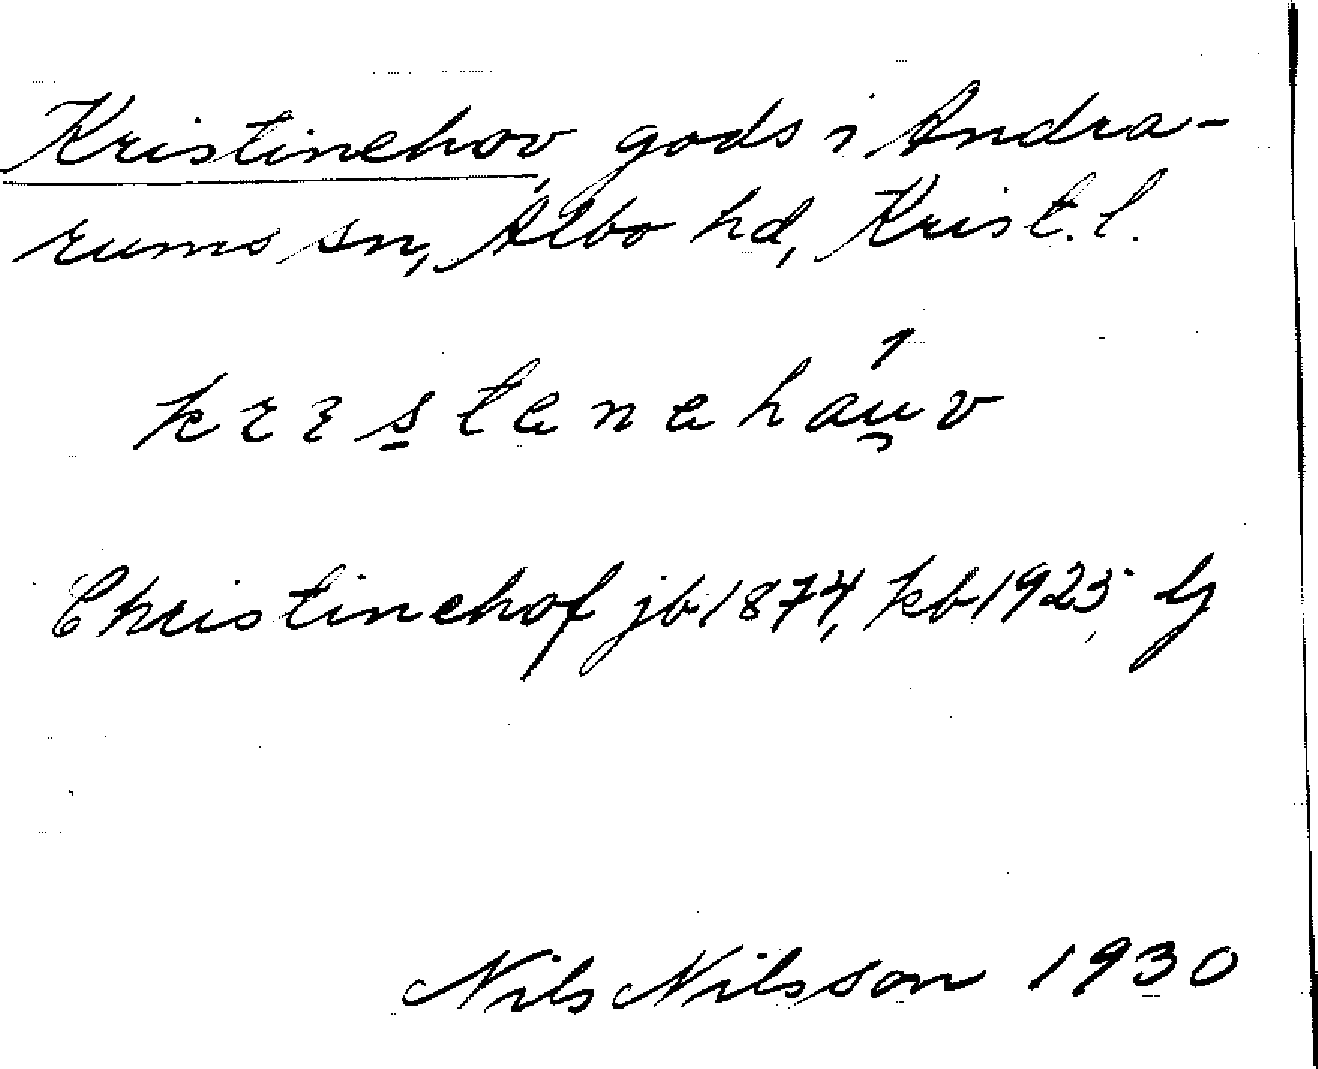 Kristinehov, gods i Andra-
rums sn, Albo hd, Krist. l.
Christinehof jb 1874, kb 1925,
Nils Nilsson 1930